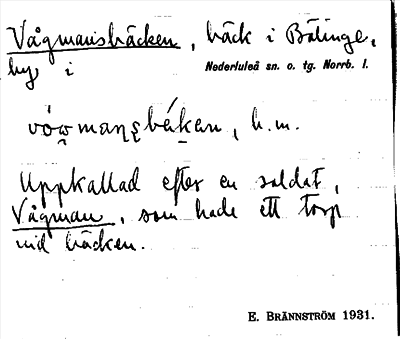 Vågmansbäcken, bäck i Bälinge,
by i Nederluleå sn. o. tg. Norrb. l.
bä́ken, b.m.
Uppkallad efter en soldat,
Vågman, som hade ett torp
vid bäcken.
E. BRÄNNSTRÖM 1931.